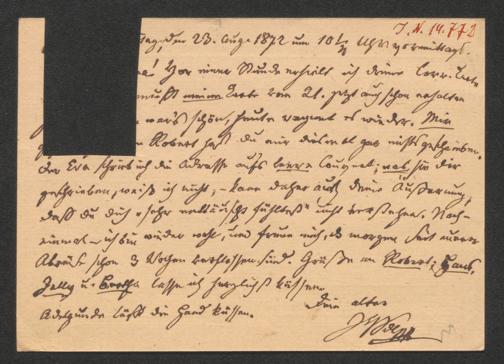 I. N. 14.772
tag, den 23. Aug. 1872 um 10½ Uhr vormittags.
Vor einer Stunde erhielt ich deine Corr. Karte
mußt meine Karte vom 21. jetzt auch schon erhalten
war's schön, heute regnet es wieder. Mir
Robert hast du mir diesmal gar nichts geschrieben.
Der Eva schrieb ich die Adresse aufs leere Couvert; was sie dir
geschrieben, weiß ich nicht, – kann daher auch deine Äußerung,
daß du dich "sehr fühltest" nicht verstehen. Noch-
einmal – ich bin wieder wohl, und freue mich, daß morgen seit unserer
Abreise schon 3 Wochen verflossen sind. Grüße an Robert, Hans,
u. Bertha lasse ich herzlichst küssen.
Dein alter
Adelgunde läßt die Hand küssen.